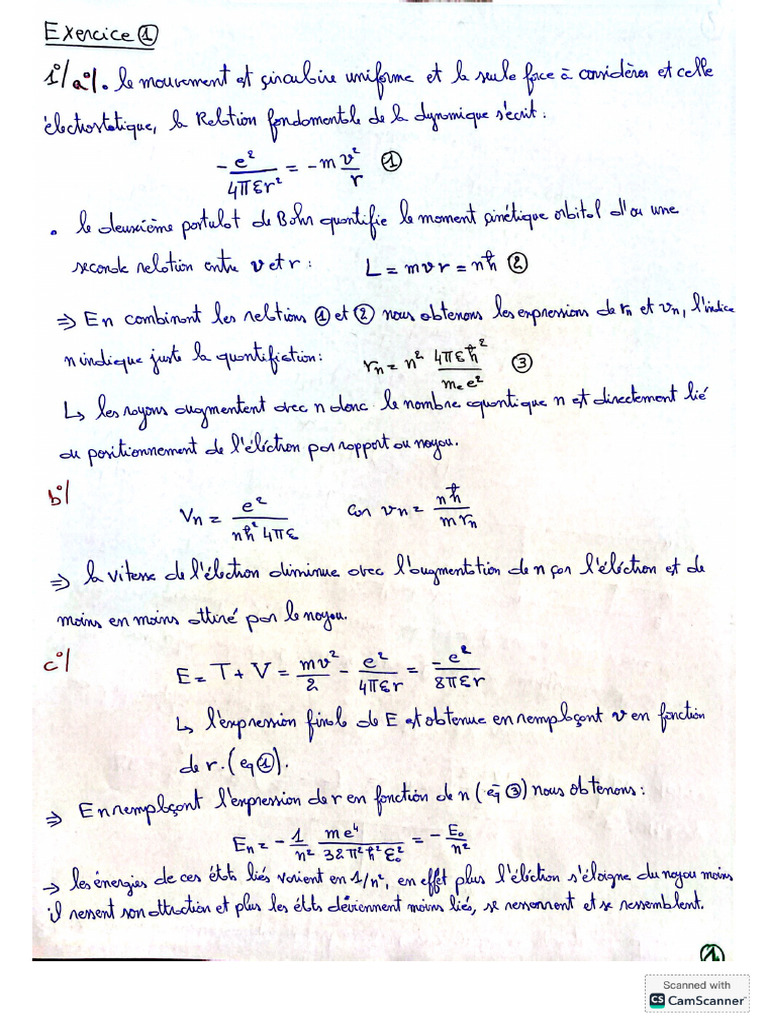 Exercice ①
1°/ a°/. le mouvement est circulaire uniforme et la seule force à considérer est celle
électrostatique, la Relation fondamentale de la dynamique s'écrit :
-e²/4πεr² = -m v²/r ①
• le deuxième postulat de Bohr quantifie le moment cinétique orbital d'où une
seconde relation entre v et r : L = mvr = nħ ②
⇒ En combinant les relations ① et ② nous obtenons les expressions de rn et vn, l'indice
n indique juste la quantification : rn = n² 4πεħ²/me e² ③
↳ les rayons augmentent avec n donc le nombre quantique n est directement lié
au positionnement de l'électron par rapport au noyau.
b°/
Vn = e²/nħ²4πε Car vn = nħ/mrn
⇒ la vitesse de l'électron diminue avec l'augmentation de n car l'électron est de
moins en moins attiré par le noyau.
c°/ E = T + V = mv²/2 - e²/4πεr = -e²/8πεr
↳ l'expression finale de E est obtenue en remplaçant v en fonction
de r. (eq ①).
⇒ En remplaçant l'expression de r en fonction de n (eq ③) nous obtenons :
En = - 1/n² me⁴/32π²ħ²ε₀² = - E₀/n²
→ les énergies de ces états liés varient en 1/n², en effet plus l'électron s'éloigne du noyau moins
il ressent son attraction et plus les états deviennent moins liés, se resserrent et se ressemblent.
①
Scanned with
CS CamScanner